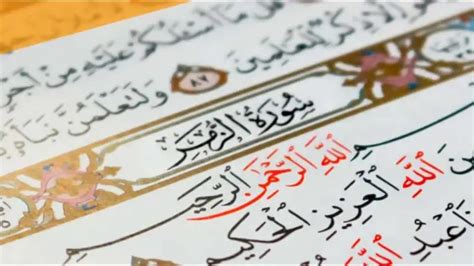 قُلْ مَا أَسْئَلُكُمْ عَلَيْهِ مِنْ أَجْرٍ
ذِكْرٌ لِلْعَالَمِينَ ٨٧ وَلَتَعْلَمُنَّ نَبَأَهُ
سُورَةُ الزُّمَرِ
اللّٰهِ الرَّحْمٰنِ الرَّحِيمِ
اللّٰهِ الْعَزِيزِ الْحَكِيمِ
اعْبُدِ اللّٰهَ